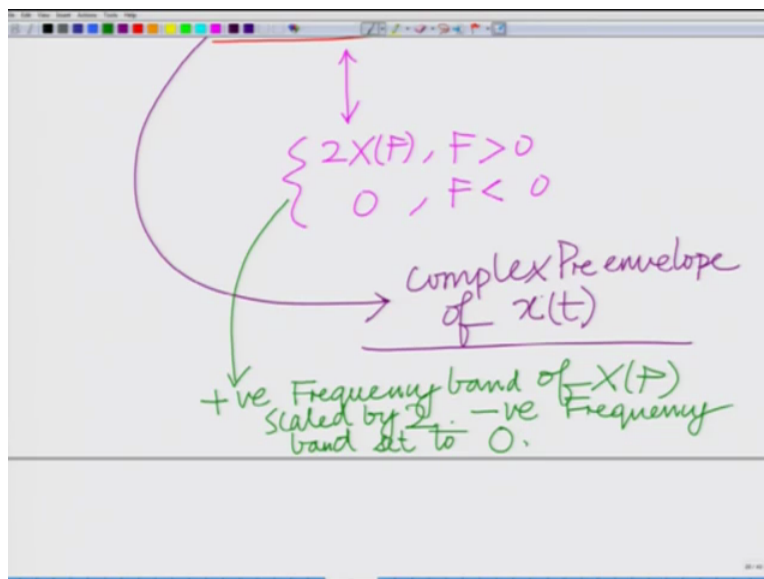 2X(F), F > 0
0 , F < 0
Complex Pre envelope
of x(t)
+ve Frequency band of X(F)
scaled by 2. -ve Frequency
band set to 0.